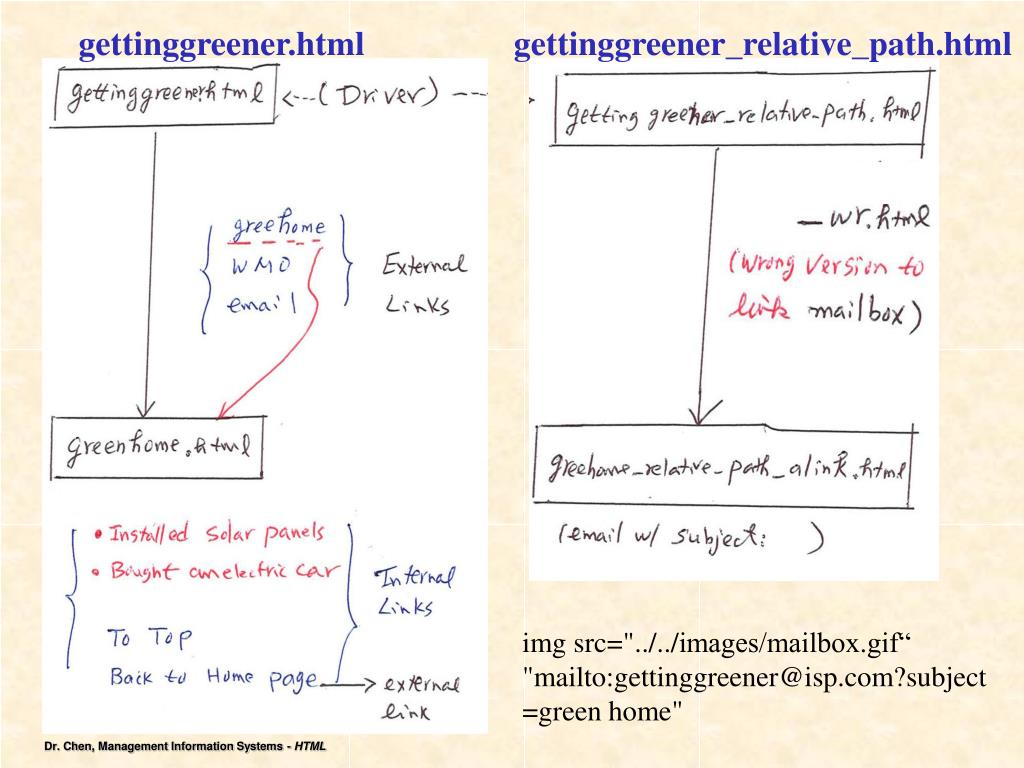 gettinggreener.html
gettinggreener_relative_path.html
gettinggreener.html <---(Driver) ---
getting greener_relative-path.html
greehome
WMO
email
External
Links
_wr.html
(wrong version to
link mailbox)
greenhome.html
greehome_relative-path_alink.html
(email w/ subject: )
• Installed solar panels
• Bought an electric car
To Top
Back to Home page
Internal
Links
external
link
img src="../../images/mailbox.gif“
"mailto:gettinggreener@isp.com?subject
=green home"
Dr. Chen, Management Information Systems - HTML